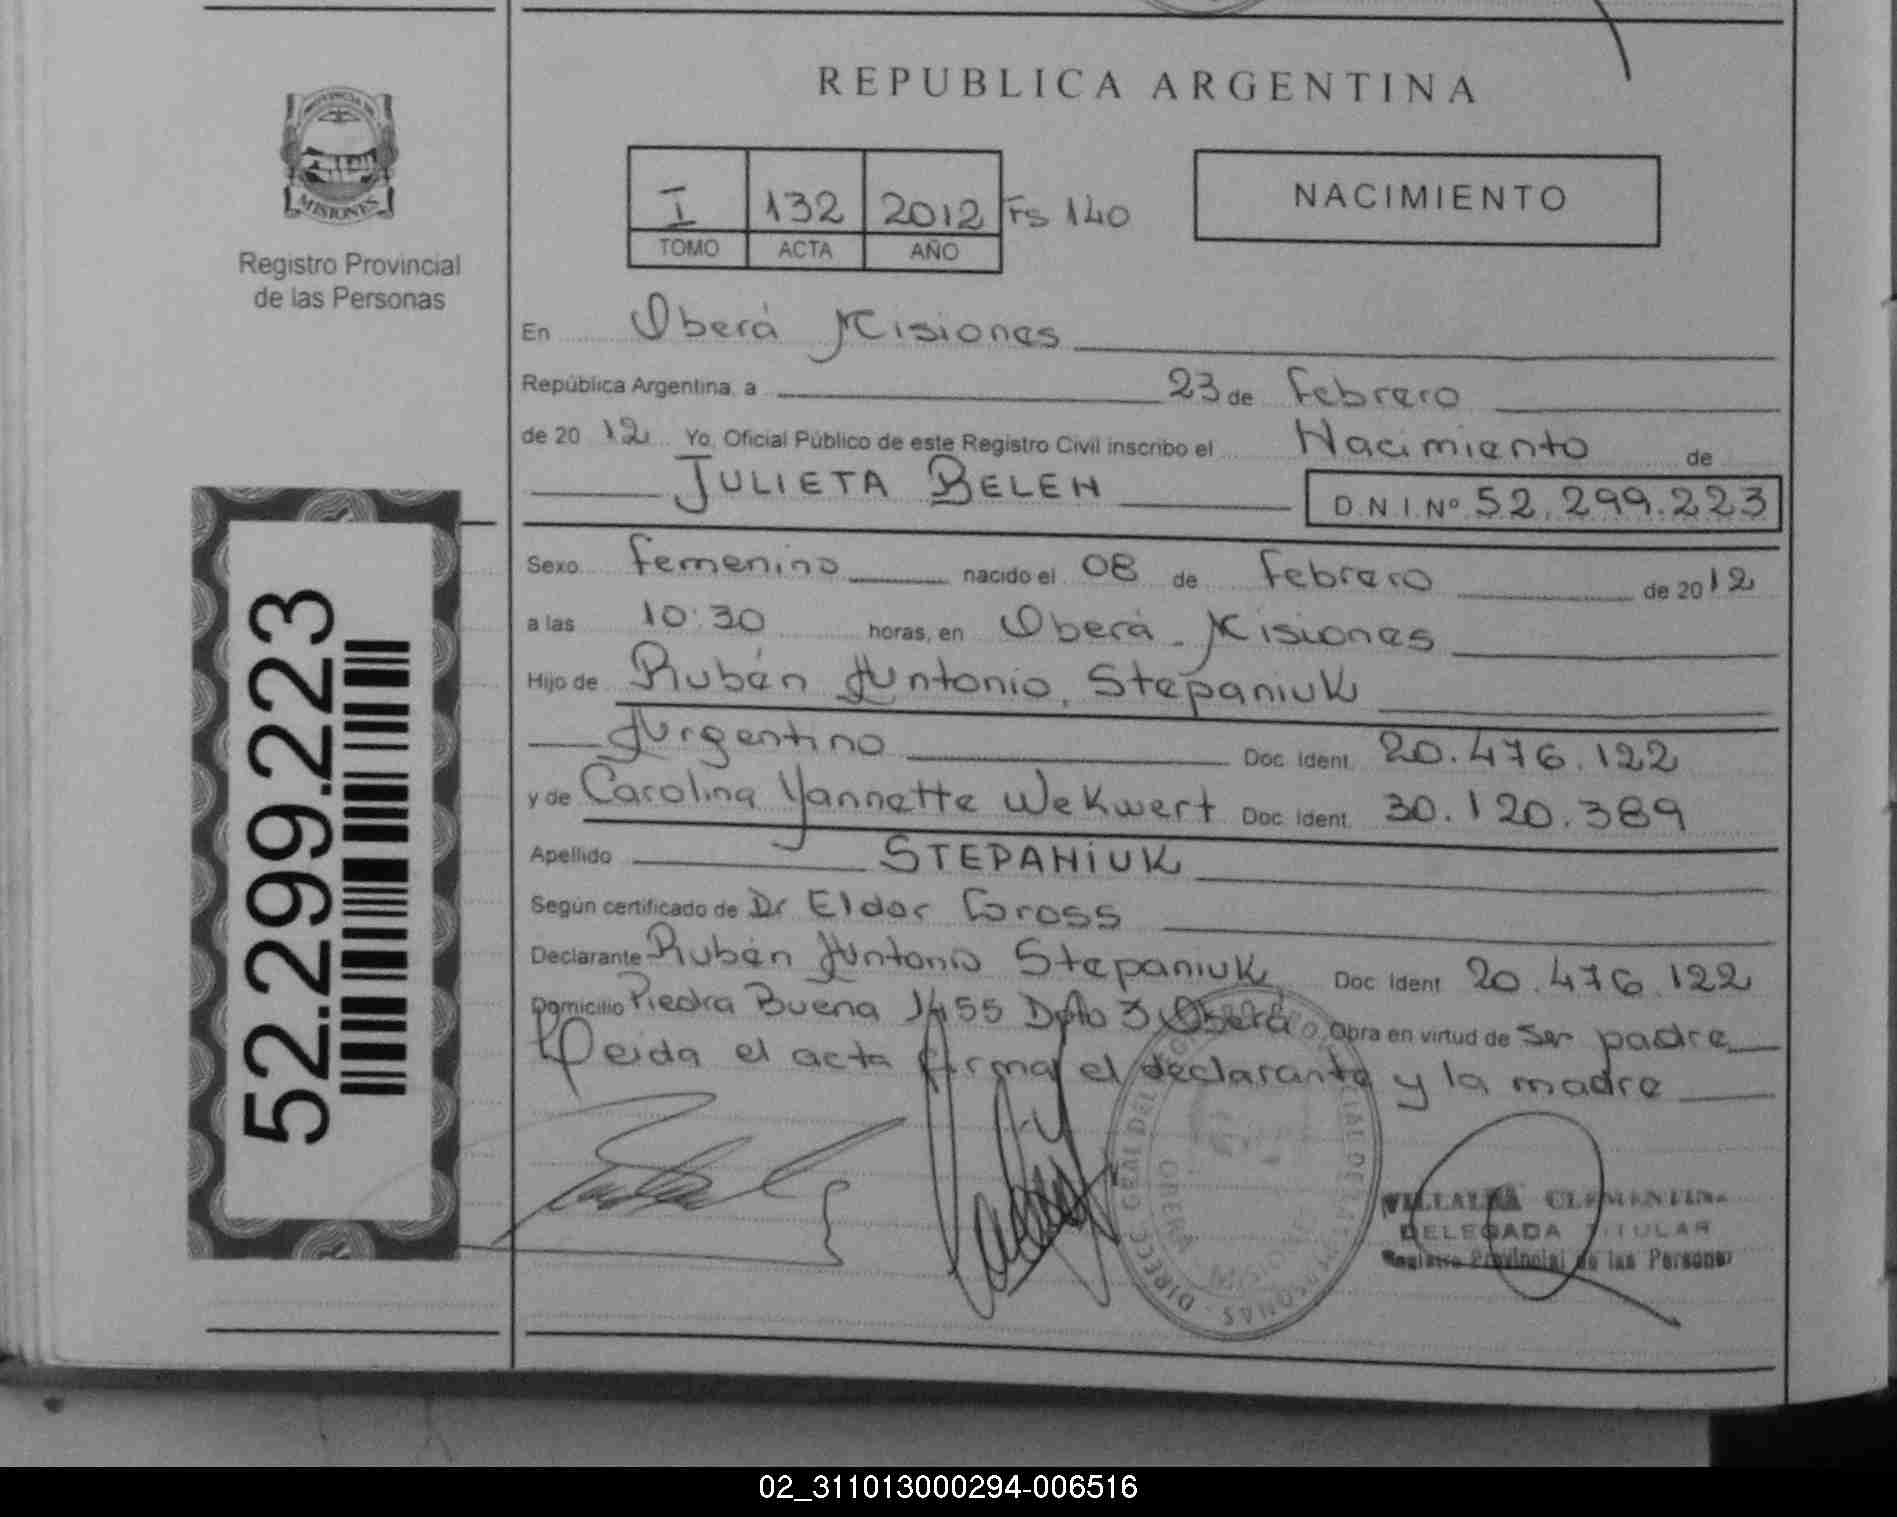 REPUBLICA ARGENTINA
PROVINCIA DE
MISIONES
Registro Provincial
de las Personas
I 132 2012 Fs 140
TOMO ACTA AÑO
NACIMIENTO
En Oberá Misiones
República Argentina, a 23 de Febrero
de 2012 Yo, Oficial Público de este Registro Civil inscribo el Nacimiento de
JULIETA BELEN D.N.I.Nº 52.299.223
Sexo Femenino nacido el 08 de Febrero de 2012
a las 10:30 horas, en Oberá - Misiones
Hijo de Rubén Antonio, Stepaniuk
Argentino Doc. Ident. 20.476.122
y de Carolina Yannette Wekwert Doc. Ident. 30.120.389
Apellido STEPANIUK
Según certificado de Dr Eldor Gross
Declarante Rubén Antonio Stepaniuk Doc. Ident. 20.476.122
Domicilio Piedra Buena 1455 Dpto 3 Oberá Obra en virtud de Ser padre
Leida el acta firma el declarante y la madre
52.299.223
DIRECC. GRAL DEL REGISTRO PROVINCIAL DE LAS PERSONAS
OBERA
MISIONES
VILLALBA CLEMENTINA
DELEGADA TITULAR
Registro Provincial de las Personas
02_311013000294-006516